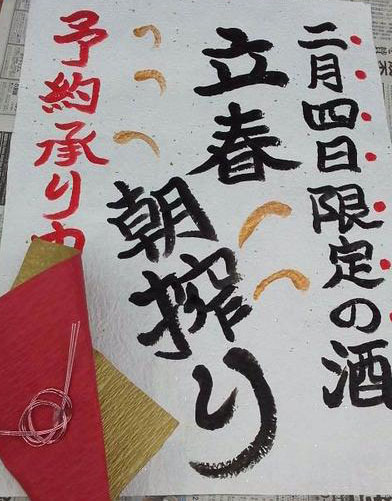 二月四日限定の酒
立春
朝搾り
予約承り中